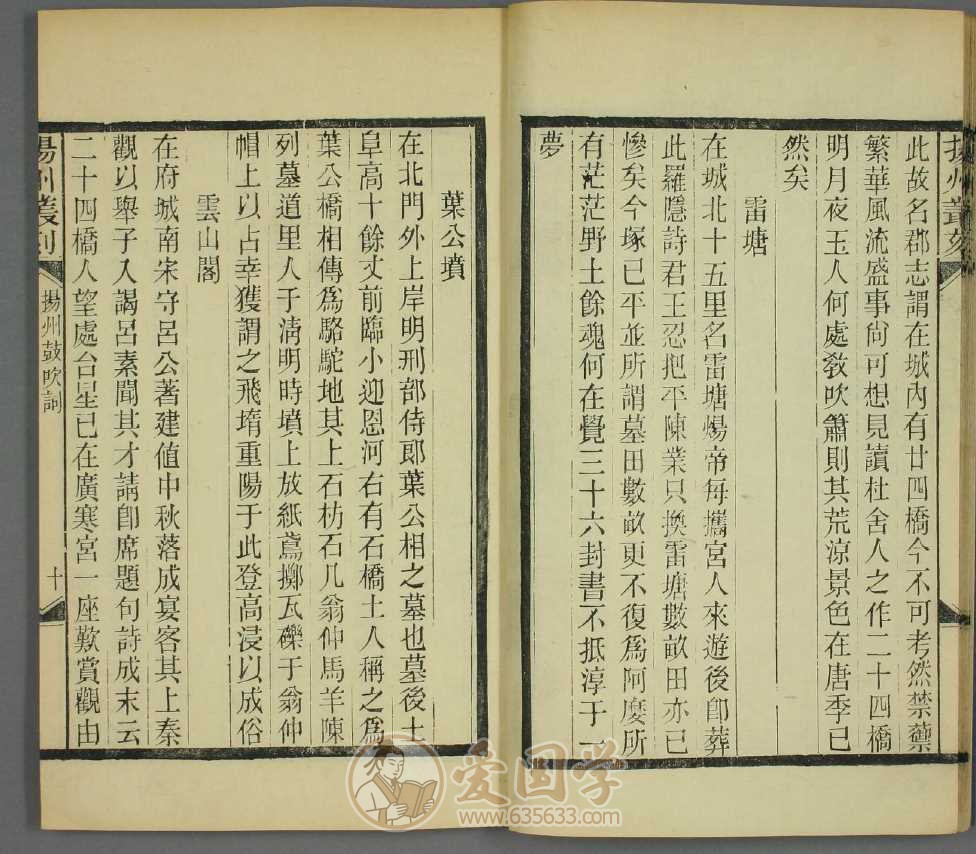 揚州叢刻
此故名郡志謂在城內有廿四橋今不可考然禁蘌
繁華風流盛事尙可想見讀杜舍人之作二十四橋
明月夜玉人何處敎吹簫則其荒涼景色在唐季已
然矣
雷塘
在城北十五里名雷塘煬帝每攜宮人來遊後卽葬
此羅隱詩君王忍把平陳業只換雷塘數畝田亦已
慘矣今塚已平並所謂墓田數畝更不復爲阿䴢所
有茫茫野土餘魂何在覺三十六封書不抵淳于一
夢
葉公墳
在北門外上岸明刑部侍郎葉公相之墓也墓後土
阜高十餘丈前臨小迎恩河右有石橋土人稱之爲
葉公橋相傳爲駱駝地其上石枋石几翁仲馬羊陳
列墓道里人于淸明時墳上放紙鳶擲瓦礫于翁仲
帽上以占幸獲謂之飛堶重陽于此登高浸以成俗
雲山閣
在府城南宋守呂公著建值中秋落成宴客其上秦
觀以舉子入謁呂素聞其才請卽席題句詩成末云
二十四橋人望處台星已在廣寒宮一座歎賞觀由
揚州叢刻
揚州鼓吹詞
十
爱国学
www.635633.com